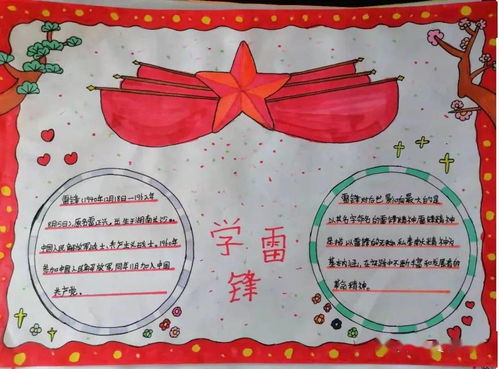 雷锋(1940年12月18日—1962年
8月15日),原名雷正兴,出生于湖南长沙。
中国人民解放军战士,共产主义战士,1960年
参加中国人民解放军,同年11月加入中国
共产党。
学雷
锋
雷锋对后世影响最大的是
以其名字命名的雷锋精神,雷锋精神
是以雷锋的无私奉献精神为
基本内涵,在实践中不断丰富和发展着的
革命精神。